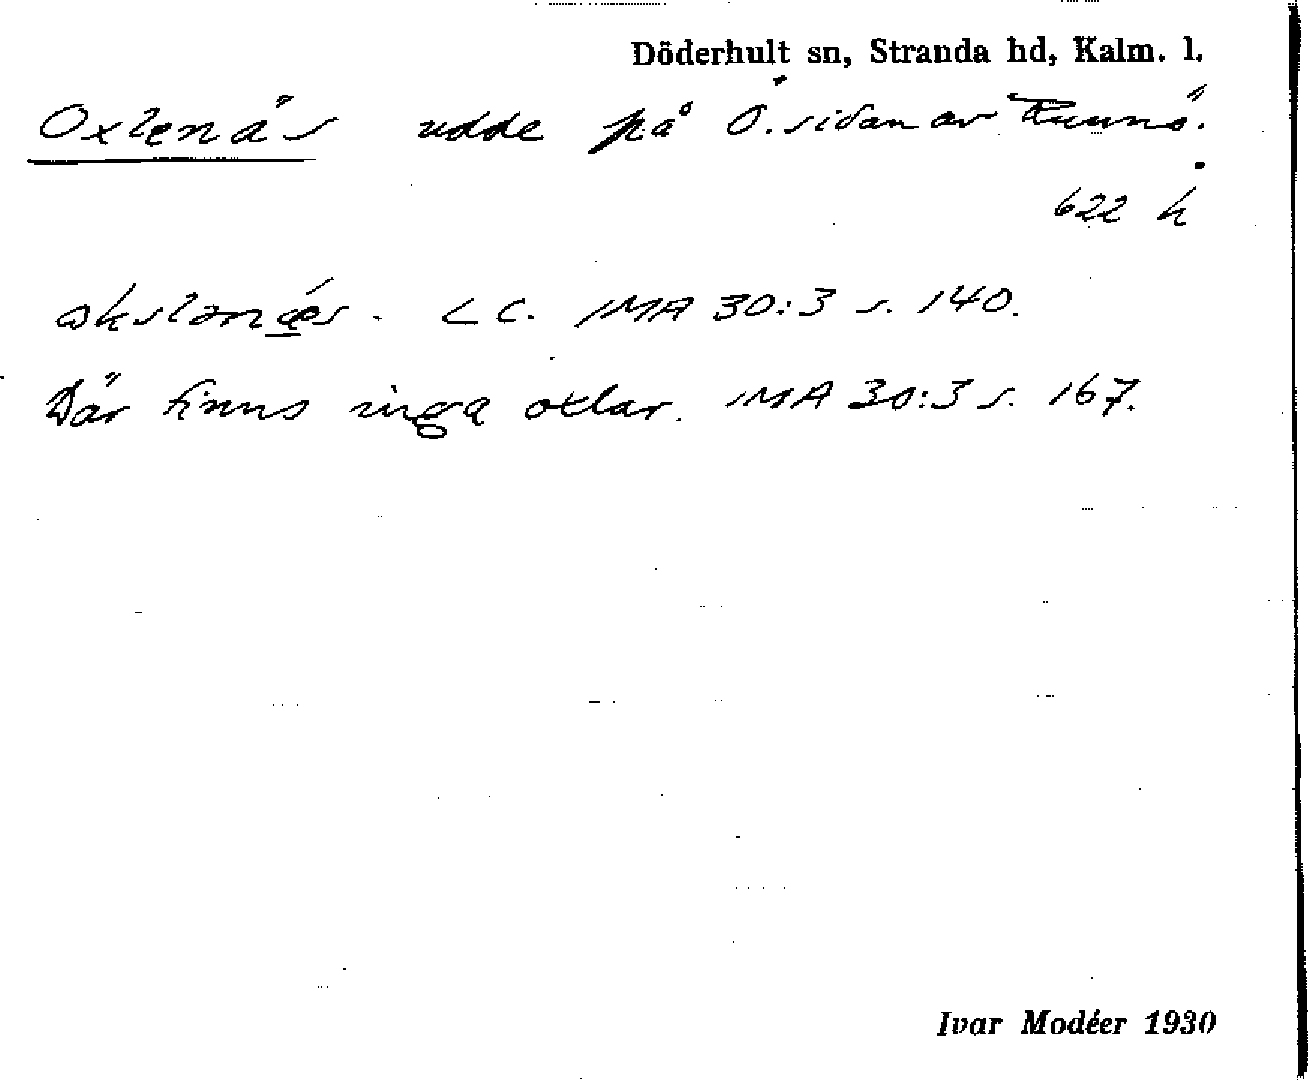 Döderhult sn, Stranda hd, Kalm. l.
Oxlenäs udde på Ö. sidan av Runnö.
622 h
LC. IMA 30:3 s. 140.
Där finns inga oxlar. IMA 30:3 s. 167.
Ivar Modéer 1930